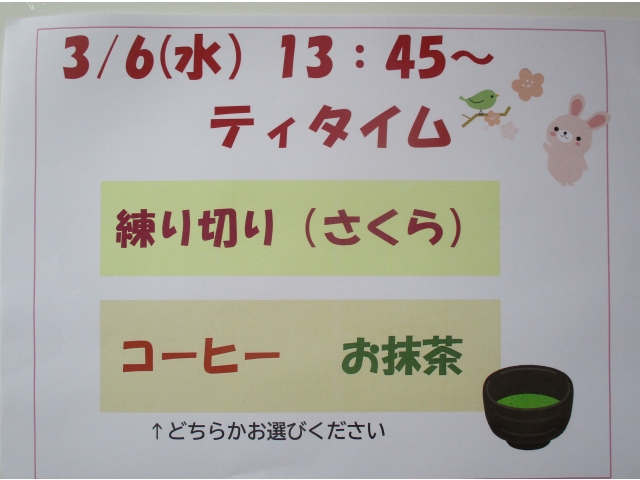 3/6(水) 13：45～
ティタイム
練り切り（さくら）
コーヒー お抹茶
↑どちらかお選びください